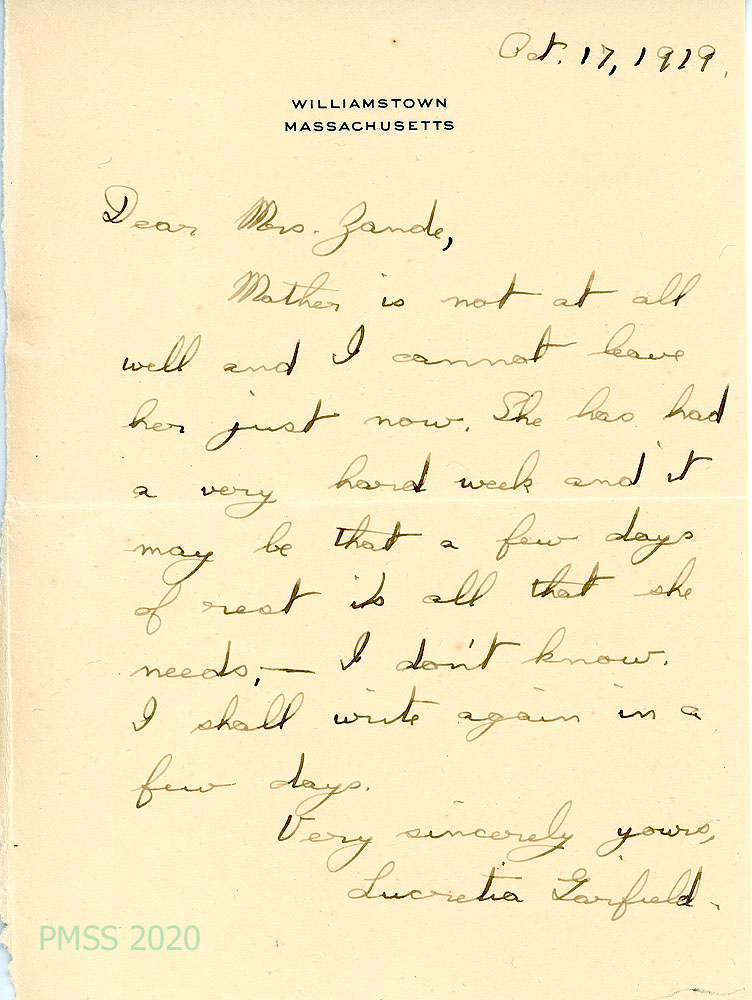 Oct. 17, 1919.
WILLIAMSTOWN
MASSACHUSETTS
Dear Mrs. Zande,
Mother is not at all
well and I cannot leave
her just now. She has had
a very hard week and it
may be that a few days
of rest is all that she
needs, — I don't know.
I shall write again in a
few days.
Very sincerely yours,
Lucretia Garfield.
PMSS 2020